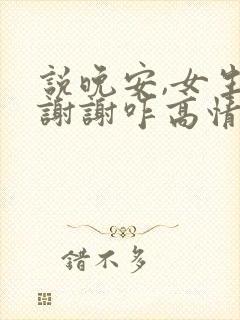 說晚安,女生
謝謝咋高情
錯不多